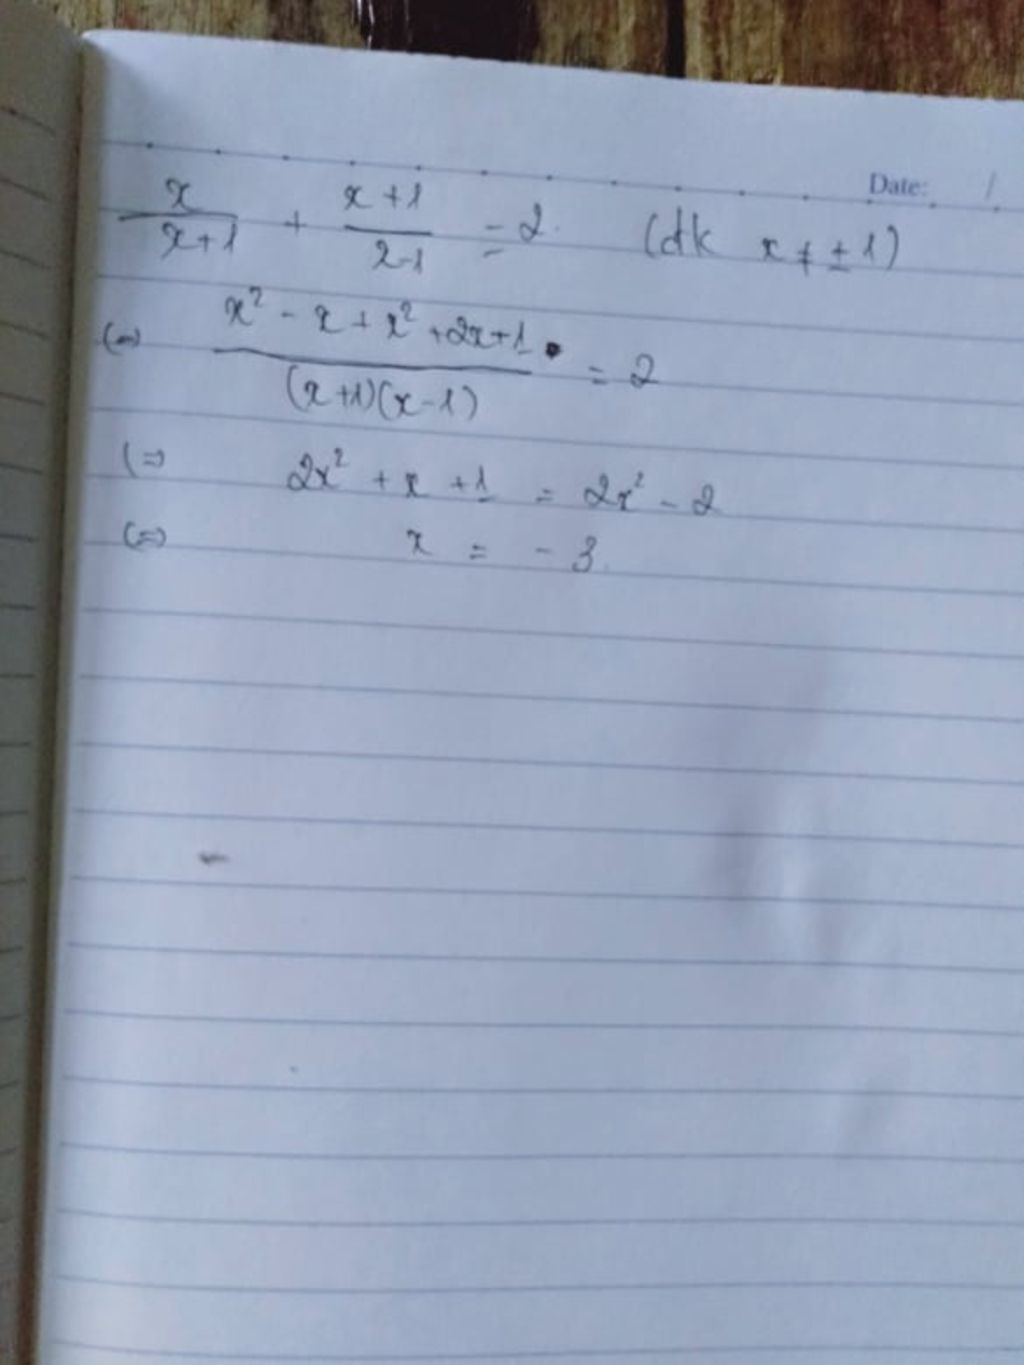 Date: /
x/(x+1) + (x+1)/(x-1) = 2. (dk x ≠ ±1)
(=) (x² - x + x² + 2x + 1)/((x+1)(x-1)) = 2
(=) 2x² + x + 1 = 2x² - 2
(=) x = - 3.